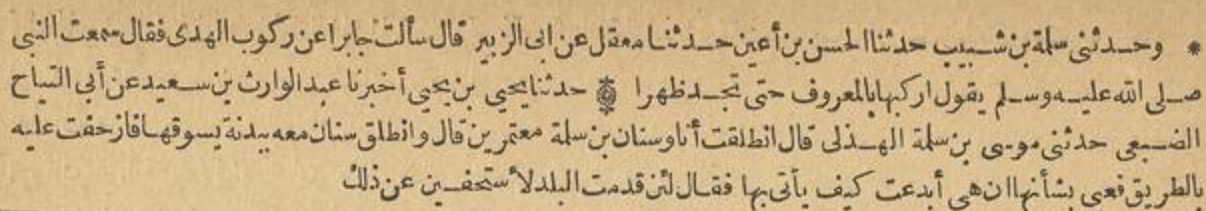 * وحدثنى سلمة بن شبيب حدثنا الحسن بن أعين حدثنا معقل عن ابى الزبير قال سألت جابرا عن ركوب الهدى فقال سمعت النبى
صلى الله عليه وسلم يقول اركبها بالمعروف حتى تجد ظهرا ۞ حدثنا يحيى بن يحيى أخبرنا عبد الوارث بن سعيد عن أبى التياح
الضبعى حدثنى موسى بن سلمة الهذلى قال انطلقت أنا وسنان بن سلمة معتمرين قال وانطلق سنان معه ببدنة يسوقها فازحفت عليه
بالطريق فعى بشأنها ان هى أبدعت كيف يأتى بها فقال لئن قدمت البلد لأستحفين عن ذلك